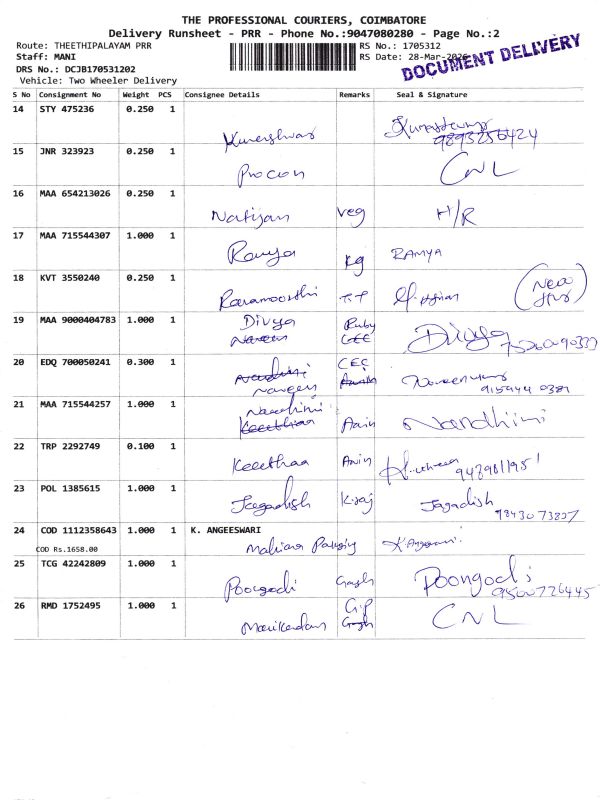 THE PROFESSIONAL COURIERS, COIMBATORE
Delivery Runsheet - PRR - Phone No.:9047080280 - Page No.:2
Route: THEETHIPALAYAM PRR
RS No.: 1705312
Staff: MANI
RS Date: 28-Mar-2026
DRS No.: DCJB170531202
DOCUMENT DELIVERY
Vehicle: Two Wheeler Delivery
S No Consignment No Weight PCS Consignee Details Remarks Seal & Signature
14 STY 475236 0.250 1
15 JNR 323923 0.250 1 CNL
16 MAA 654213026 0.250 1 Natijan veg H/R
17 MAA 715544307 1.000 1 Ramya kg RAMYA
18 KVT 3550240 0.250 1 Raramoorthi T.T (New
19 MAA 9000404783 1.000 1 Divya Ruby Divya
Naveen CEE
20 EDQ 700050241 0.300 1 Nandhini CEE
Naveen
21 MAA 715544257 1.000 1 Nandhini Nandhini
Keerthaa
22 TRP 2292749 0.100 1 Keerthaa
23 POL 1385615 1.000 1 Jagadish K.raj Jagadish
9843073837
24 COD 1112358643 1.000 1 K. ANGEESWARI
COD Rs.1658.00
25 TCG 42242809 1.000 1 Poongodi Poongodi
9500726445
26 RMD 1752495 1.000 1 Manikandan G.P CNL